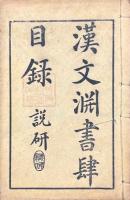 漢文淵書肆
目錄
說研